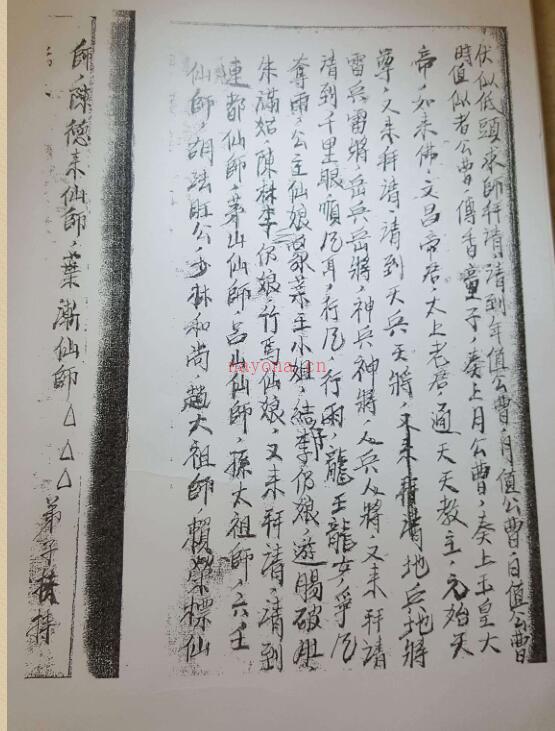 伏似低頭求師拜請、請到年值公曹、月值公曹、日值公曹
時值似者公曹、傳香童子、奏上月公曹、奏上玉皇大
帝、如來佛、文昌帝君、太上老君、通天天教主、元始天
尊、又來拜請、請到天兵天將、又來拜請地兵地將
雷兵雷將、岳兵岳將、神兵神將、人兵人將、又來拜請
請到千里眼順風耳、行風、行雨、龍王龍安、爭風
奪雨、公主仙娘、蒙菜主小姐、結李仍娘、遊腸破肚
朱滿姑、陳林李仍娘、竹馬仙娘、又來拜請、請到
連都仙師、茅山仙師、呂山仙師、孫太祖師、六壬
仙師、胡法旺公、少林和尚、趙大祖師、賴榮標仙
師、陳德來仙師、葉 仙師△△△ 弟子扶持
nayona.cn